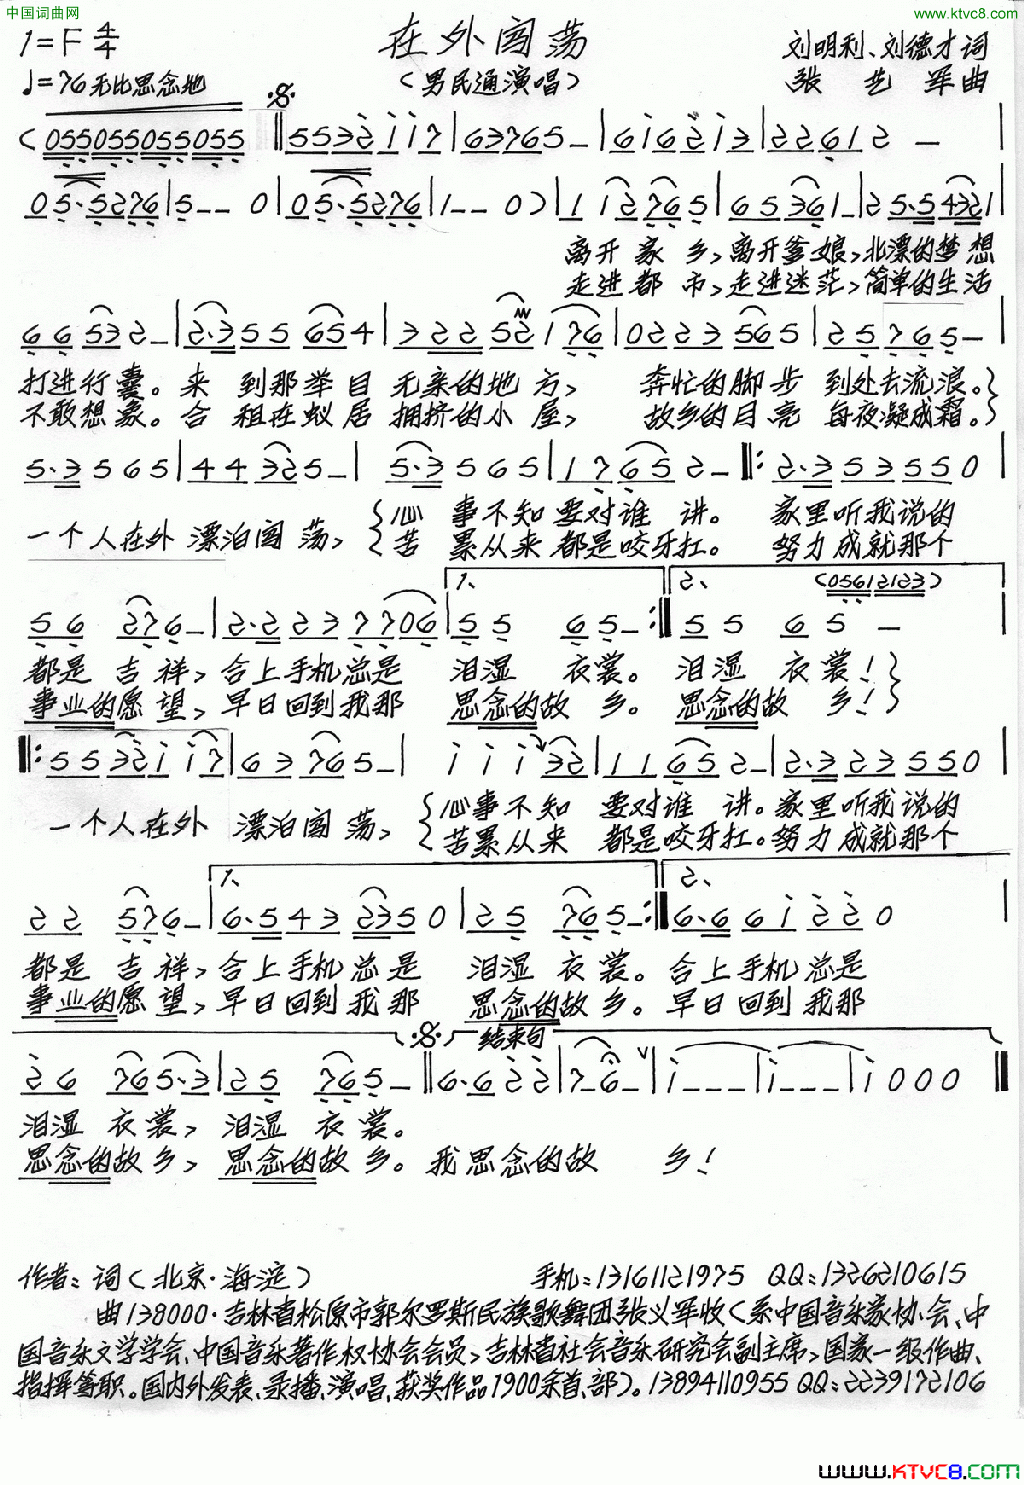 中国词曲网
www.ktvc8.com
1=F 4/4
在外闯荡
刘明利、刘德才词
♩=76 无比思念地
(男民通演唱)
张艺军曲
(055055055055 ‖ 5532117 | 63765- | 616213 | 22612 - |
05·5276 | 5-- 0 | 05·5276 | 1-- 0) | 112765 | 65361- | 25·54321 |
离开家乡,离开爹娘,北漂的梦想
走进都市,走进迷茫,简单的生活
66532- | 2·355654 | 32252176 | 0223565 | 25765- |
打进行囊。来到那举目无亲的地方,奔忙的脚步到处去流浪。
不敢想象。合租在蚁居拥挤的小屋,故乡的月亮每夜凝成霜。
5·3565 | 44325- | 5·3565 | 17652- ‖: 2·353550 |
一个人在外漂泊闯荡, 心事不知要对谁讲。 家里听我说的
苦累从来都是咬牙扛。 努力成就那个
1、 2、 (05612123)
56 276- | 2·2237706 | 55 65- :‖ 55 65 - |
都是吉祥,合上手机总是泪湿衣裳。泪湿衣裳!
事业的愿望,早日回到我那思念的故乡。思念的故乡!
‖: 5532117 | 63765- | 11132 | 11652- | 2·323550 |
一个人在外漂泊闯荡, 心事不知要对谁讲。家里听我说的
苦累从来都是咬牙扛。努力成就那个
1、 2、
22 576- | 6·5432350 | 25 765- :‖ 6·661220 |
都是吉祥,合上手机总是泪湿衣裳。合上手机总是
事业的愿望,早日回到我那思念的故乡。早日回到我那
结束句
26 765·3 | 25 765- ‖ 6·622 | 7-6- | 1--- | 1--- | 1000 ‖
泪湿衣裳,泪湿衣裳。
思念的故乡,思念的故乡。我思念的故乡!
作者:词(北京·海淀) 手机:13161121975 QQ:1326210615
曲138000·吉林省松原市郭尔罗斯民族歌舞团张义军收(系中国音乐家协会、中
国音乐文学学会、中国音乐著作权协会会员,吉林省社会音乐研究会副主席,国家一级作曲、
指挥等职。国内外发表、录播、演唱、获奖作品1900余首、部)。13894110955 QQ:2239172106
www.KTVC8.COM